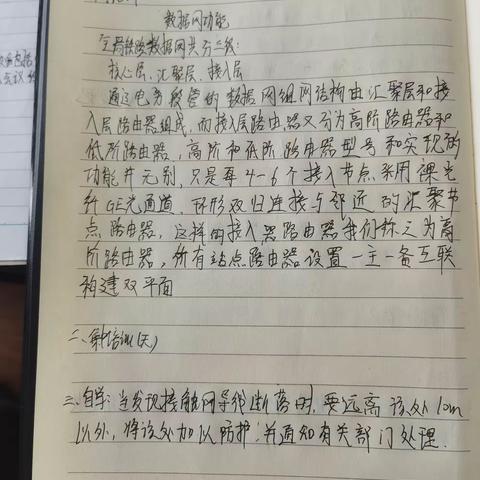 数据网功能
全局铁路数据网共分三线:
核心层、汇聚层、接入层
通辽电务段管的数据网组网结构由汇聚层和接
入层路由器组成,而接入层路由器又分为高阶路由器和
低阶路由器,高阶和低阶路由器型号和实现的
功能并无别,只是每4-6个接入节点采用裸光
纤GE光通道,环形双归连接与邻近的汇聚节
点路由器,这样的接入器路由器我们称之为高
阶路由器,所有站点路由器设置一主一备互联
构建双平面
二、集中培训(天)
三、自学:当发现接触网导线断落时,要远离该处10m
以外,将该处加以防护,并通知有关部门处理.